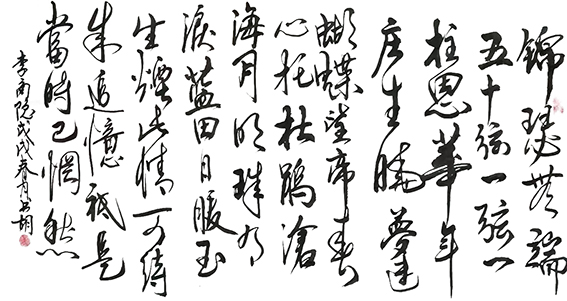 錦瑟無端
五十弦一弦一
柱思華年
庄生曉夢迷
蝴蝶望帝春
心托杜鵑滄
海月明珠有
淚藍田日暖玉
生煙此情可待
成追憶祇是
當時已惘然
李商隐戊戌春月